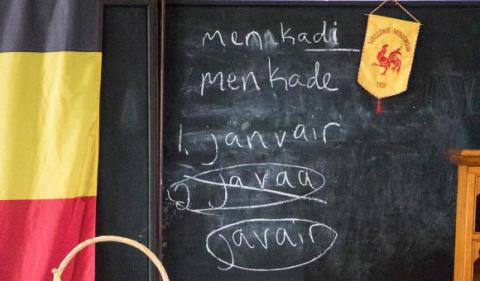 mennkadi
menkade
1. janvair
2) javaa
javair
WALLONIE-WISCONSIN